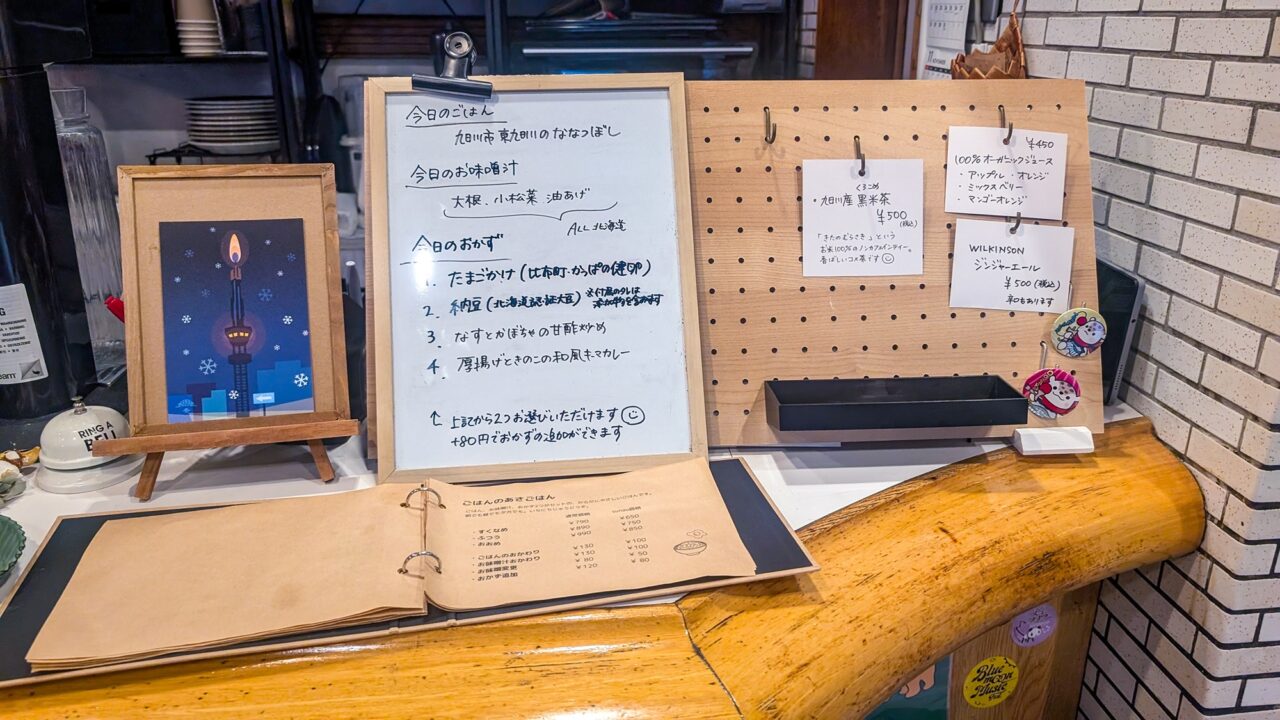 今日のごはん
旭川市 東旭川のななつぼし
今日のお味噌汁
大根、小松菜 油あげ
ALL 北海道
今日のおかず
1. たまごかけ（比布町・かっぱの健卵）
2. 納豆（北海道認証大豆）
※付属のタレは
添加物を含みます
3. なすとかぼちゃの甘酢炒め
4. 厚揚げときのこの和風キーマカレー
↑ 上記から2つお選びいただけます☺
+80円でおかずの追加ができます
くろごめ
・旭川産 黒米茶
¥500
(税込)
「きたのむらさき」という
お米100%のノンカフェインティー。
香ばしいコメ茶です☺
¥450
100%オーガニックジュース
・アップル ・オレンジ
・ミックスベリー
・マンゴーオレンジ
WILKINSON
ジンジャーエール
¥500(税込)
辛口もあります
RING A
BELL
ごはんのあさごはん
ごはん、お味噌汁、おかず2つがセットの、からだにやさしいごはんです。
通常価格
・すくなめ ¥790 ¥650
・ふつう ¥890 ¥750
・おおめ ¥990 ¥850
・ごはんのおかわり ¥130 ¥100
・お味噌汁おかわり ¥130 ¥100
・お味噌変更 ¥80 ¥50
・おかず追加 ¥120 ¥80
11 NOVEMBER
Blue
moon
Music